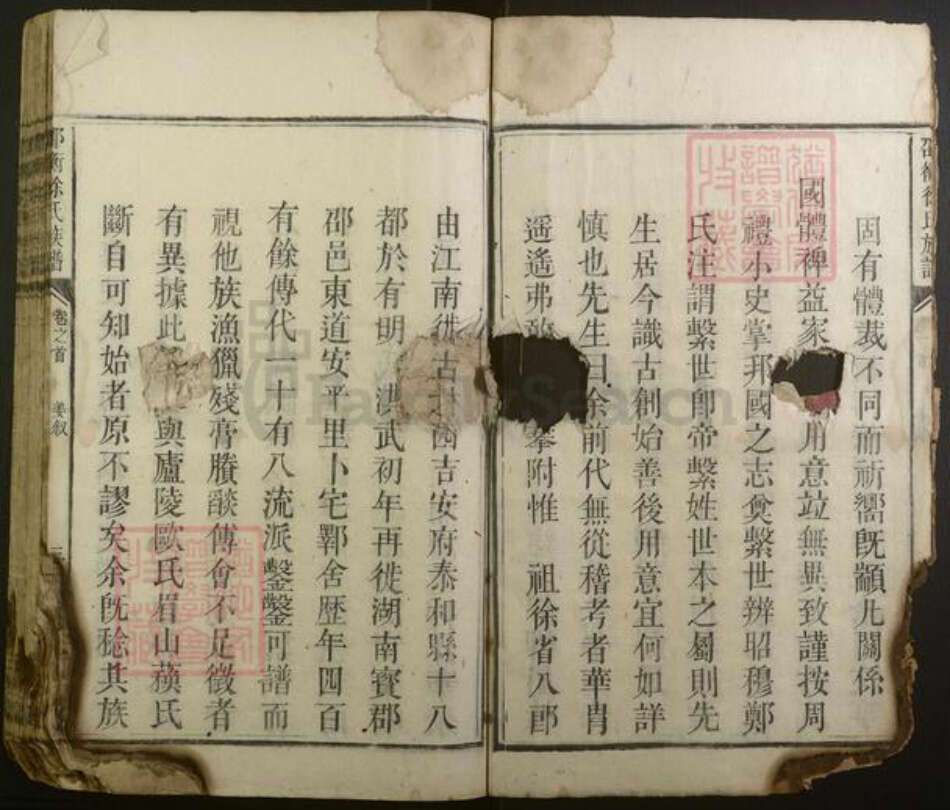 固有體裁不同而祈嚮旣顓凡關係
國體裨益家用意竝無異致謹按周
禮小史掌邦國之志奠繫世辨昭穆鄭
氏注謂繫世卽帝繫姓世本之屬則先
生居今識古創始善後用意宜何如詳
慎也先生曰余前代無從稽考者華胄
遥遙弗攀附惟 祖徐省八郎
由江南徙古吉安府泰和縣十八
都於有明洪武初年再徙湖南寳郡
邵邑東道安平里卜宅鄿舍歷年四百
有餘傳代一十有八流派鑿鑿可譜而
視他族漁獵殘膏賸燄傅會不足徵者
有異據此與廬陵歐氏眉山蘓氏
斷自可知始者原不謬矣余旣稔其族
邵衡徐氏族譜
卷之首
姜叙
FamilySearch